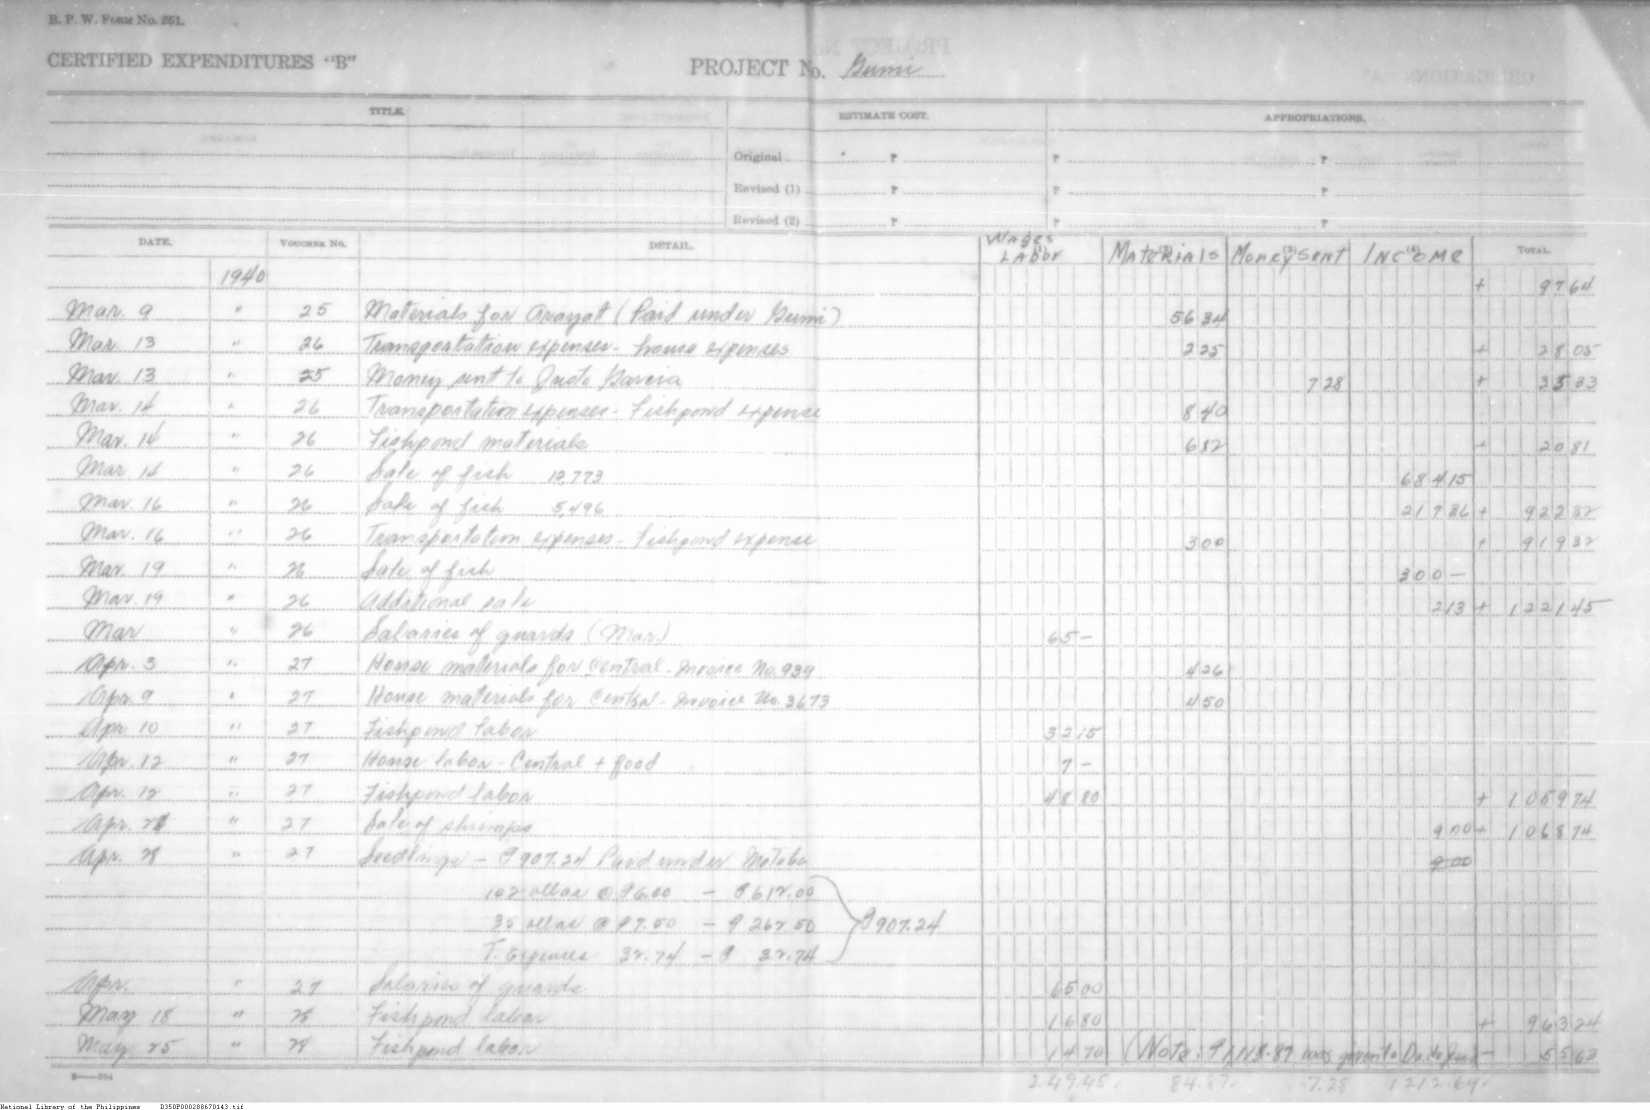 B. P. W. Form No. 251.
CERTIFIED EXPENDITURES "B" PROJECT No. Gumi
TITLE. ESTIMATE COST. APPROPRIATIONS.
Original ₱ ₱ ₱
Revised (1) ₱ ₱ ₱
Revised (2) ₱ ₱ ₱
DATE. VOUCHER No. DETAIL. Wages (1) LABOR MATERIALS (2) MONEY SENT (3) INCOME (4) TOTAL.
1940 + 97 64
Mar. 9 " 25 Materials for Arayat (Paid under Gumi) 56 34
Mar. 13 " 26 Transportation expenses - house expenses 2 25 + 28 05
Mar. 13 " 25 Money sent to Justo Garcia 7 28 + 35 33
Mar. 14 " 26 Transportation expenses - Fishpond expense 8 40
Mar. 14 " 26 Fishpond materials 6 82 + 20 81
Mar. 14 " 26 Sale of fish 12,773 684 15
Mar. 16 " 26 Sale of fish 5,496 217 86 + 922 82
Mar. 16 " 26 Transportation expenses - Fishpond expense 3 00 + 919 82
Mar. 19 " 26 Sale of fish 300 —
Mar. 19 " 26 Additional sale 2 13 + 1221 45
Mar " 26 Salaries of guards (Mar.) 65 —
Apr. 3 " 27 House materials for Central - Invoice No. 939 4 26
Apr. 9 " 27 House materials for Central - Invoice No. 3673 4 50
Apr. 10 " 27 Fishpond labor 32 15
Apr. 12 " 27 House labor - Central + food 7 —
Apr. 12 " 27 Fishpond labor 48 80 + 1059 74
Apr. " 27 Sale of shrimps 9 00 + 1068 74
Apr. " 27 Seedlings — ₱907.24 Paid under Mataba 9 00
102 ollas @ ₱6.00 — ₱612.00
35 ollas @ ₱7.50 — ₱262.50 ₱907.24
T. Expenses 32.74 — ₱ 32.74
Apr. " 27 Salaries of guards 65 00
May 18 " 28 Fishpond labor 16 80 + 963 24
May 25 " 28 Fishpond labor 14 70 (Note: ₱1,118.87 was given to — 55 62
B——294 249.45 84.57 7.28 1212.64
National Library of the Philippines D350P000288670143.tif